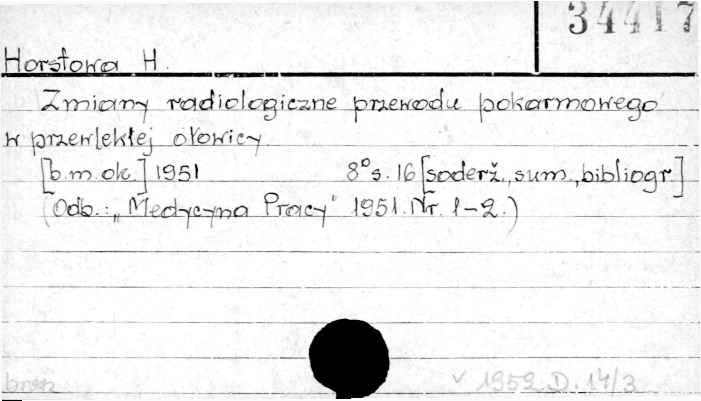 34417
Horstowa H.
Zmiany radiologiczne przewodu pokarmowego
w przewlekłej ołowicy
[b.m.ok.] 1951 8° s. 16 [soderž., sum., bibliogr]
(Odb.: „Medycyna Pracy" 1951. Nr. 1-2.)
v 1952.D.14/3